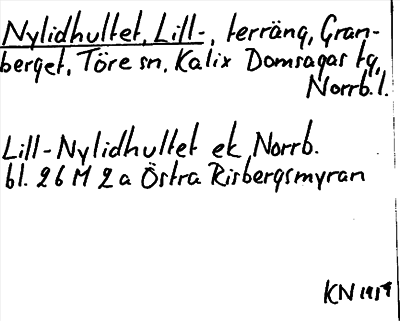 Nylidhultet, Lill-, terräng, Gran-
berget, Töre sn, Kalix Domsagas tg,
Norrb. l.
Lill-Nylidhultet ek Norrb.
bl. 26 M 2 a Östra Risbergsmyran
KN